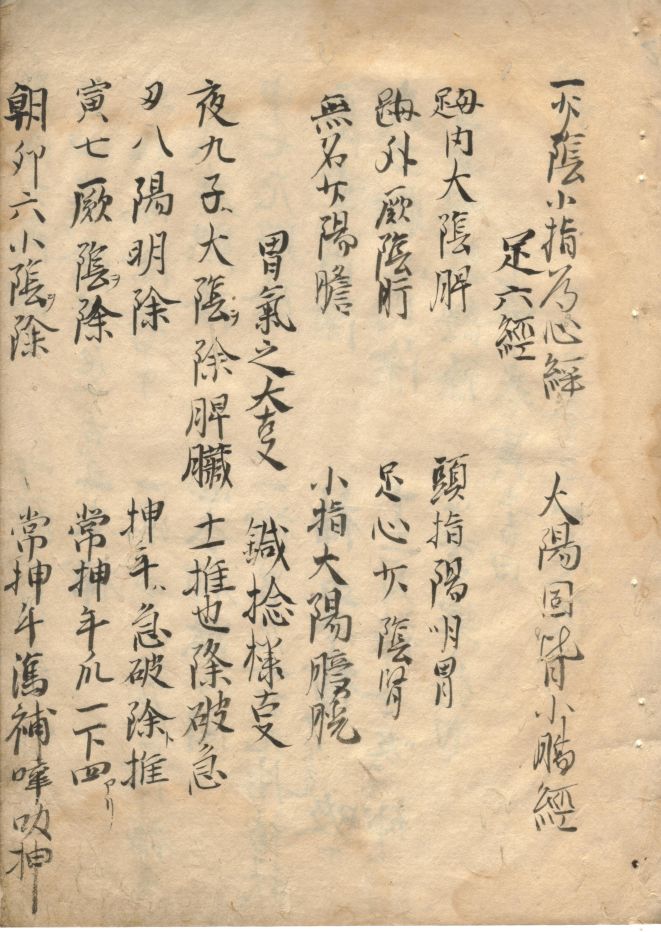 一少陰小指为心經　大陽同背小腸經
足六經
踇内大陰脾　頭指陽明胃
踇外厥陰肝　足心少陰腎
無名少陽膽　小指大陽膀胱
胃氣之大叓　鍼捻様叓
夜九子大陰ヲ除脾臓　士推也除破急
丑八陽明除　押手急破除ト推
寅七厥陰ヲ除　常押手爪一下四アリ
朝卯六小陰ヲ除　常押手瀉補叩押